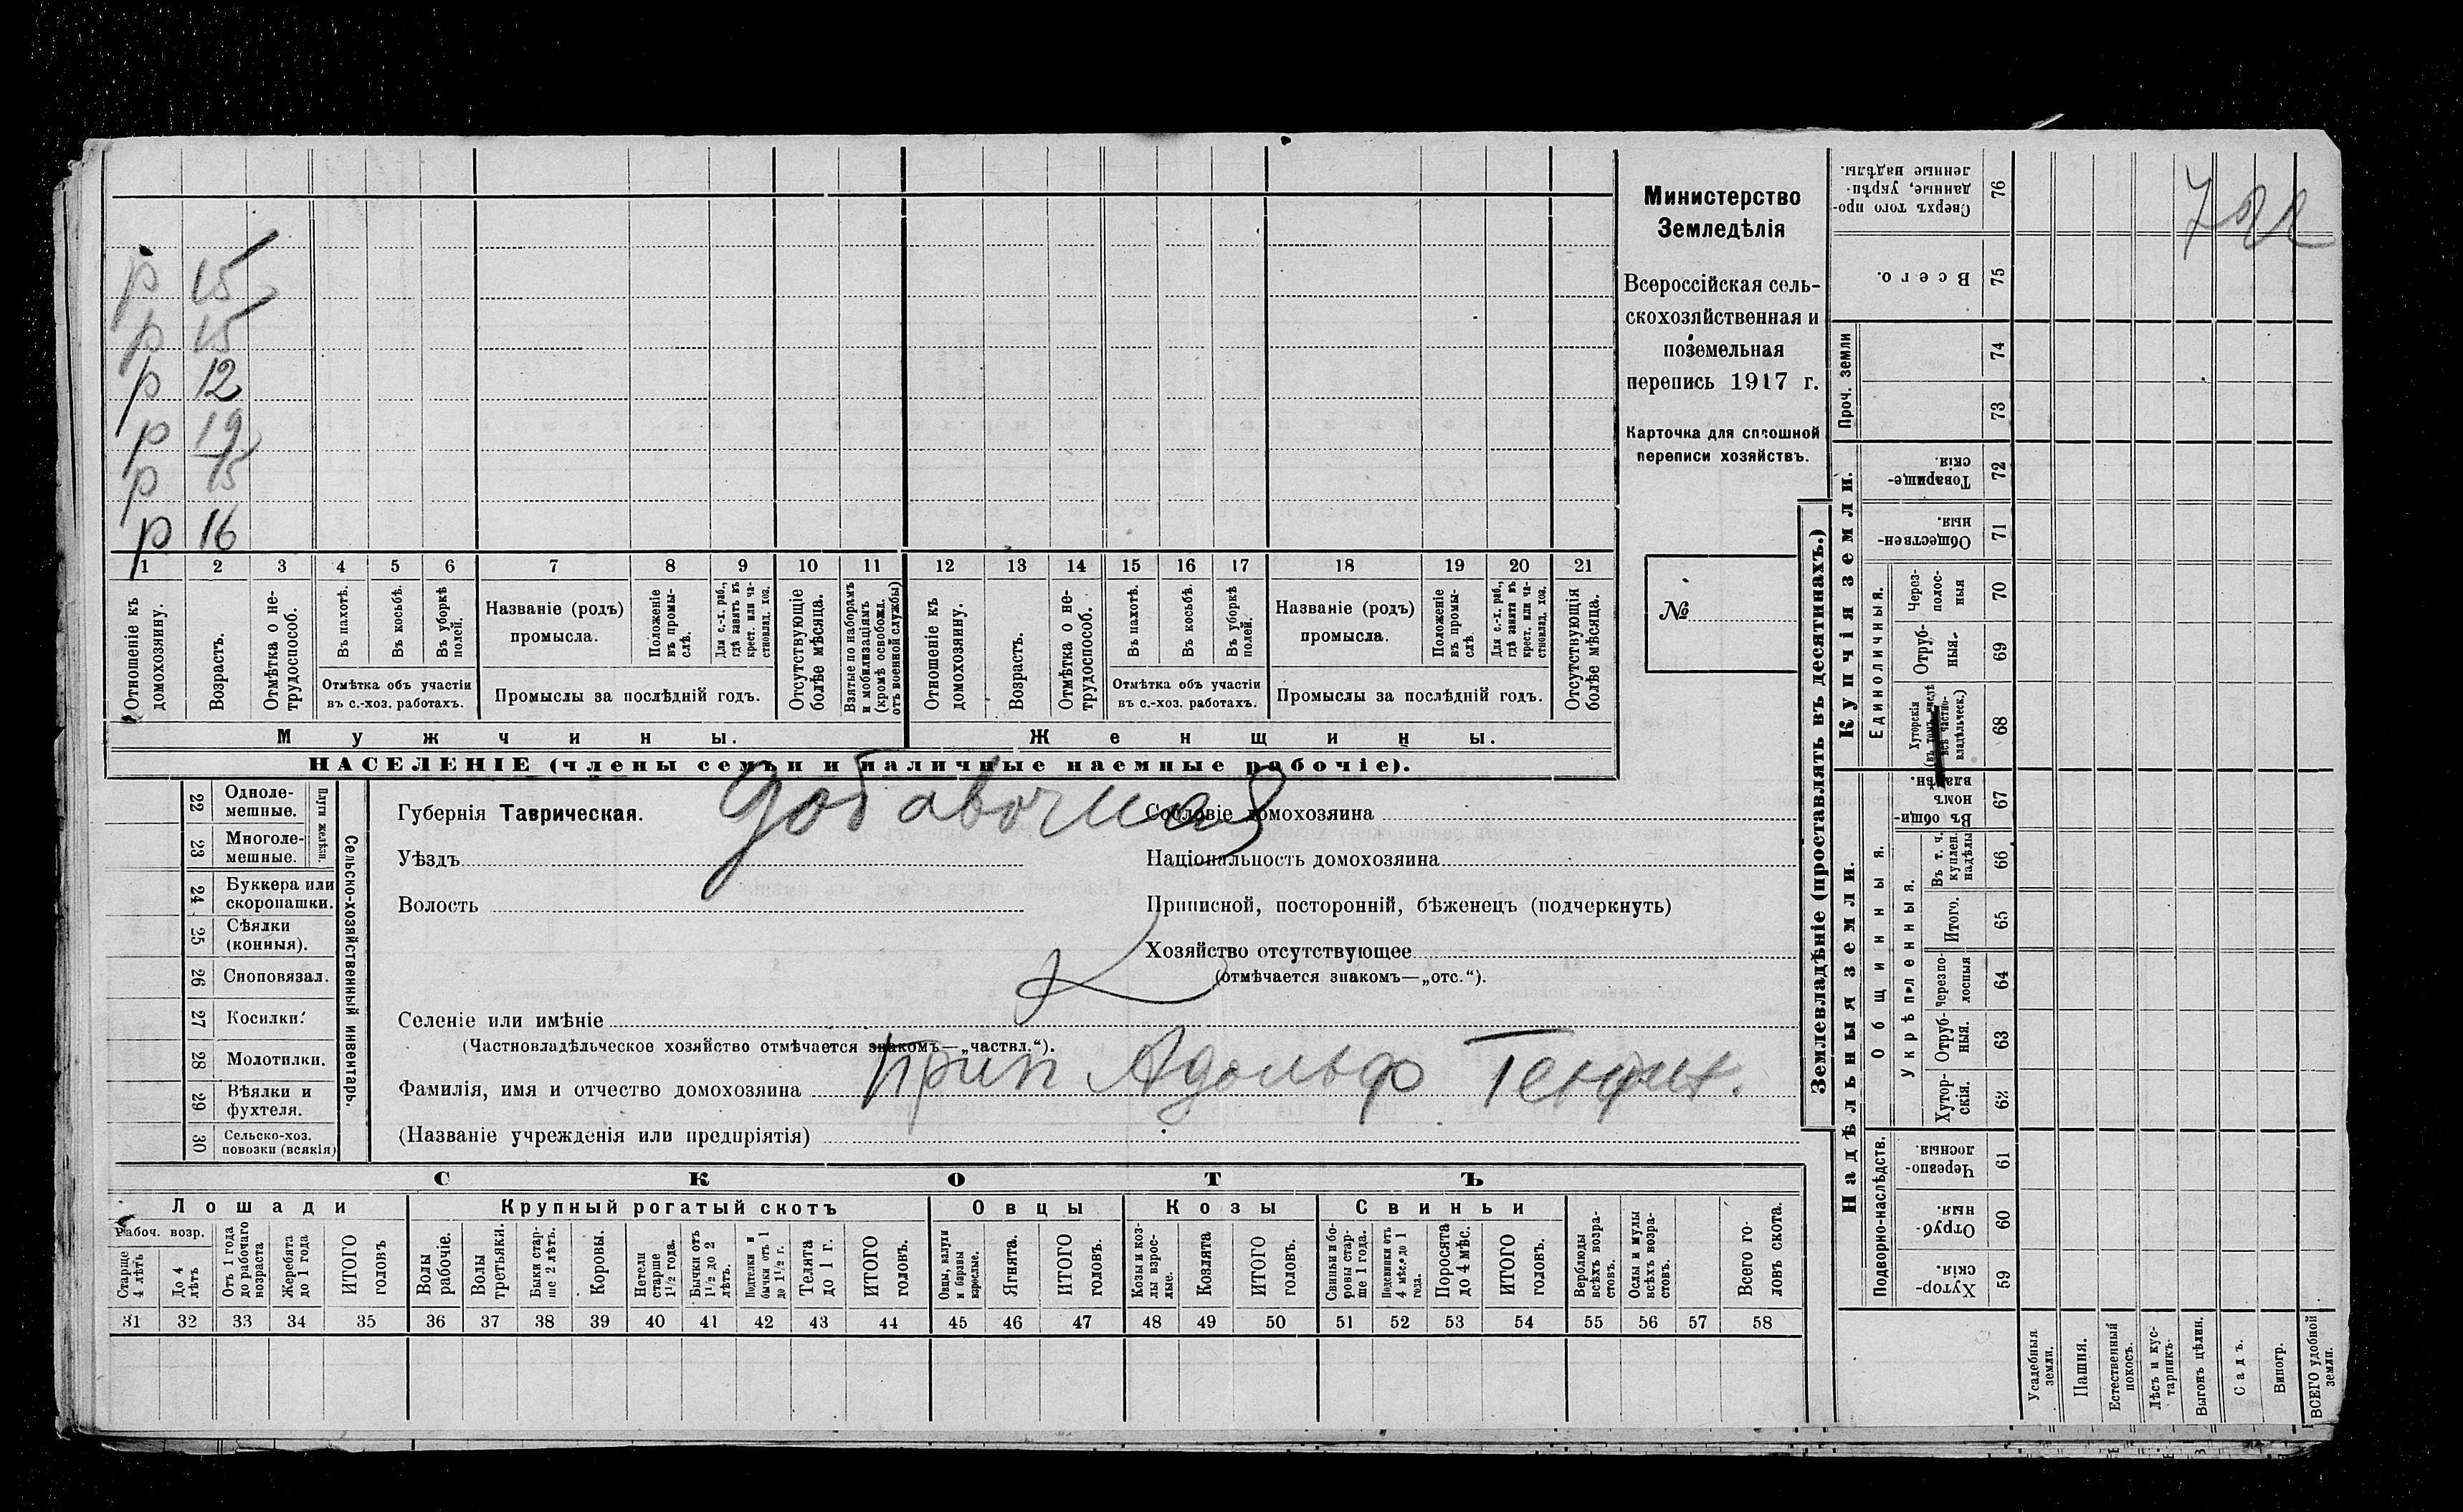 р 15
р 15
р 12
р 19
р 15
р 16
1 2 3 4 5 6 7 8 9 10 11 12 13 14 15 16 17 18 19 20 21
Отношеніе къ домохозяину.
Возрастъ.
Отмѣтка о не-трудоспособ.
Въ пахотѣ.
Въ косьбѣ.
Въ уборкѣ полей.
Отмѣтка объ участіи
въ с.-хоз. работахъ.
Названіе (родъ)
промысла.
Положеніе въ промы-слѣ.
Для с.-х. раб., гдѣ занятъ въ крест. или ча-стновлад. хоз.
Промыслы за послѣдній годъ.
Отсутствующіе болѣе мѣсяца.
Взятые по наборамъ и мобилизаціямъ (кромѣ освобожд. отъ военной службы)
Отношеніе къ домохозяину.
Возрастъ.
Отмѣтка о не-трудоспособ.
Въ пахотѣ.
Въ косьбѣ.
Въ уборкѣ полей.
Отмѣтка объ участіи
въ с.-хоз. работахъ.
Названіе (родъ)
промысла.
Положеніе въ промы-слѣ.
Для с.-х. раб., гдѣ занята въ крест. или ча-стновлад. хоз.
Промыслы за послѣдній годъ.
Отсутствующія болѣе мѣсяца.
Мужчины.
Женщины.
НАСЕЛЕНІЕ (члены семьи и наличные наемные рабочіе).
Министерство
Земледѣлія
Всероссійская сель-
скохозяйственная и
поземельная
перепись 1917 г.
Карточка для сплошной
переписи хозяйствъ.
№
22 Однолемешные.
23 Многолемешные.
Плуги желѣзн.
24 Буккера или скоропашки.
25 Сѣялки (конныя).
26 Сноповязал.
27 Косилки.
28 Молотилки.
29 Вѣялки и фухтеля.
30 Сельско-хоз. повозки (всякія)
Сельско-хозяйственный инвентарь.
Добавочная
Губернія Таврическая.
Уѣздъ
Волость
Сословіе домохозяина
Національность домохозяина
Приписной, посторонній, бѣженецъ (подчеркнуть)
Хозяйство отсутствующее
(отмѣчается знакомъ—„отс.“).
Селеніе или имѣніе
(Частновладѣльческое хозяйство отмѣчается знакомъ—„частвл.“).
Фамилія, имя и отчество домохозяина Прип Адольф
(Названіе учрежденія или предпріятія)
СКОТЪ
Лошади
Крупный рогатый скотъ
Овцы
Козы
Свиньи
Рабоч. возр.
Старше 4 лѣтъ
До 4 лѣтъ
Отъ 1 года до рабочаго возраста
Жеребята до 1 года
ИТОГО головъ
Волы рабочіе.
Волы третьяки.
Быки стар-ше 2 лѣтъ.
Коровы.
Нетели старше 1½ года.
Бычки отъ 1½ до 2 лѣтъ.
Подтелки и бычки отъ 1 до 1½ г.
Телята до 1 г.
ИТОГО головъ.
Овцы, валухи и бараны взрослые.
Ягнята.
ИТОГО головъ.
Козы и коз-лы взрос-лые.
Козлята
ИТОГО головъ.
Свиньи и бо-ровы стар-ше 1 года.
Подсвинки отъ 4 мѣс. до 1 года.
Поросята до 4 мѣс.
ИТОГО головъ.
Верблюды всѣхъ возра-стовъ.
Ослы и мулы всѣхъ возра-стовъ.
Всего го-ловъ скота.
31 32 33 34 35 36 37 38 39 40 41 42 43 44 45 46 47 48 49 50 51 52 53 54 55 56 57 58
Землевладѣніе (проставлять въ десятинахъ.)
Купчія земли.
Надѣльныя земли.
Проч. земли
Единоличныя.
Общинныя.
Укрѣпленныя.
Подворно-наслѣдств.
Сверхъ того про-данные, укрѣп-ленные надѣлы. 76
Всего. 75
74
73
Товарище-скія. 72
Обществен-ныя. 71
Через-полос-ныя 70
Отруб-ныя. 69
Хуторскія (въ томъ числѣ всѣ частно-владѣльческ.) 68
Въ общин-номъ владѣн. 67
Въ т. ч. куплен. надѣлы 66
Итого. 65
Черезпо-лосныя 64
Отруб-ныя. 63
Хутор-скія. 62
Черезпо-лосныя 61
Отруб-ныя. 60
Хутор-скія. 59
Усадебныя земли.
Пашня.
Естественный покосъ.
Лѣсъ и кус-тарникъ
Выгонъ цѣлин.
Садъ.
Виногр.
ВСЕГО удобной земли.